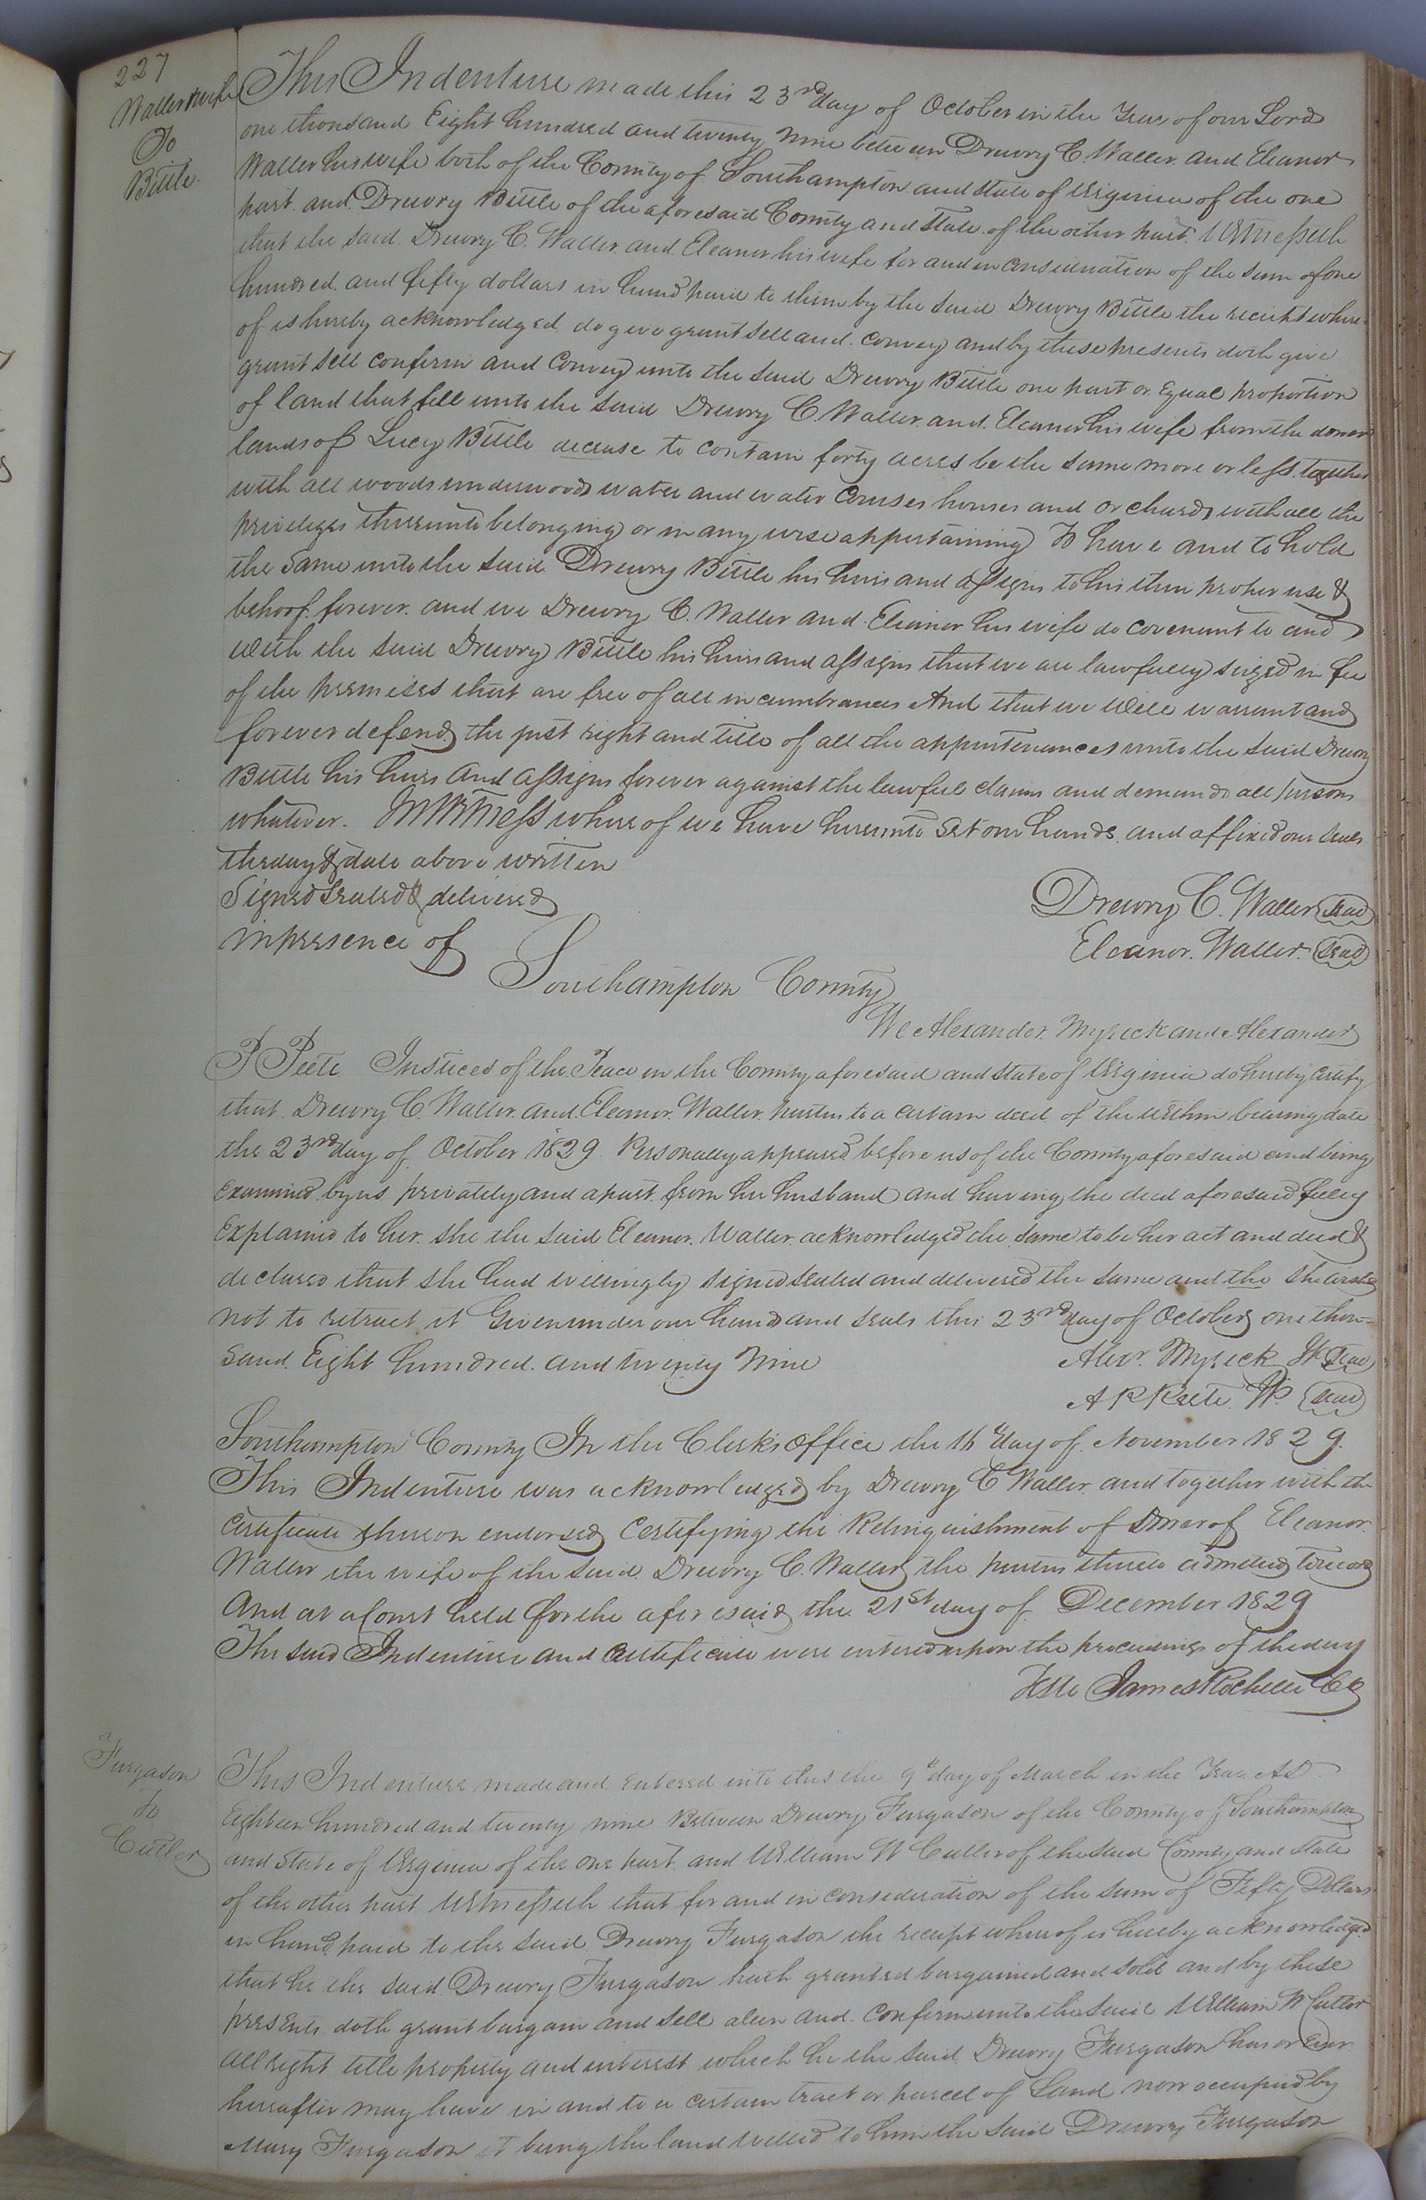 227
Waller & wife
To
Bittle
This Indenture made this 23rd day of October in the Year of our Lord
one thousand Eight hundred and twenty Nine between Drewry C. Waller and Eleanor
Waller his wife both of the County of Southampton and State of Virginia of the one
part and Drewry Bittle of the aforesaid County and State of the other part. Witnesseth
that the said Drewry C. Waller and Eleanor his wife for and in consideration of the sum of one
hundred and fifty dollars in hand paid to them by the said Drewry Bittle the reciept where-
of is hereby acknowledged do give grant sell and convey and by these presents doth give
grant sell confirm and convey unto the said Drewry Bittle one part or Equal proportion
of land that fell unto the said Drewry C. Waller and Eleanor his wife from the dower
lands of Lucy Bittle decease to contain forty acres be the same more or less together
with all woods underwoods water and water Courses houses and orchards with all the
priveliges thereunto belonging or in any wise appertaining To have and to hold
the same unto the said Drewry Bittle his heirs and assigns to his their proper use &
behoof forever. and we Drewry C. Waller and Eleanor his wife do covenant to and
with the said Drewry Bittle his heirs and assigns that we are lawfully seized in fee
of the premises that are free of all incumbrances And that we will warrant and
forever defend the just right and title of all the appurtenances unto the said Drewry
Bittle his heirs and assigns forever against the lawful claims and demands all persons
whatever. In Witness whereof we have hereunto set our hands and affixed our seals
the day & date above written
Signed Sealed & delivered
in presence of
Drewry C. Waller Seal
Eleanor Waller Seal
Southampton County
We Alexander Myrick and Alexander
P Peete Justices of the Peace in the County aforesaid and State of Virginia do hereby certify
that Drewry C Waller and Eleanor Waller parties to a certain deed of the within bearing date
the 23rd day of October 1829 Personally appeared before us of the County aforesaid and being
Examined by us privately and apart from her husband and having the deed aforesaid fully
Explained to her she the said Eleanor Waller acknowledged the same to be her act and deed &
declared that she had willingly signed sealed and delivered the same and the she wished
not to retract it Given under our hands and seals this 23rd day of October one thou-
sand Eight hundred and twenty Nine
Alexr. Myrick JP Seal
A P Peete JP Seal
Southampton County In the Clerk's Office the 16th day of November 1829.
This Indenture was acknowledged by Drewry C Waller and together with the
Certificate thereon endorsed Certifying the Relinquishment of Dower of Eleanor
Waller the wife of the said Drewry C. Waller the parties thereto admitted to record
And at a Court held for the aforesaid the 21st day of December 1829
The said Indenture and Certificate were entered upon the proceedings of the day
Teste James Rochelle CC
Furgason
To
Cutler
This Indenture made and entered into this the 9th day of March in the Year AD
Eighteen hundred and twenty nine Between Drewry Furgason of the County of Southampton
and State of Virginia of the one part and William W Cutler of the said County and State
of the other part Witnesseth that for and in consideration of the sum of Fifty Dollars
in hand paid to the said Drewry Furgason the receipt whereof is hereby acknowledged
that he the said Drewry Furgason hath granted bargained and sold and by these
presents doth grant bargain and sell alien and confirm unto the said William W Cutler
all right title property and interest which he the said Drewry Furgason has or ever
hereafter may have in and to a certain tract or parcel of Land now occupied by
Mary Furgason it being the land willed to him the said Drewry Furgason